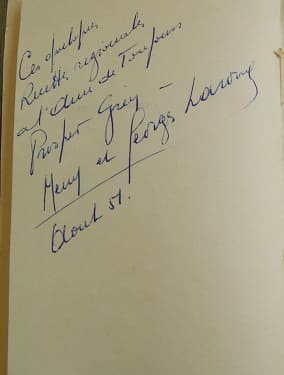 Ces quelques
Recettes régionales
à l'Amie de Toujours
Prosper
Meny et Georges
Aout 51.